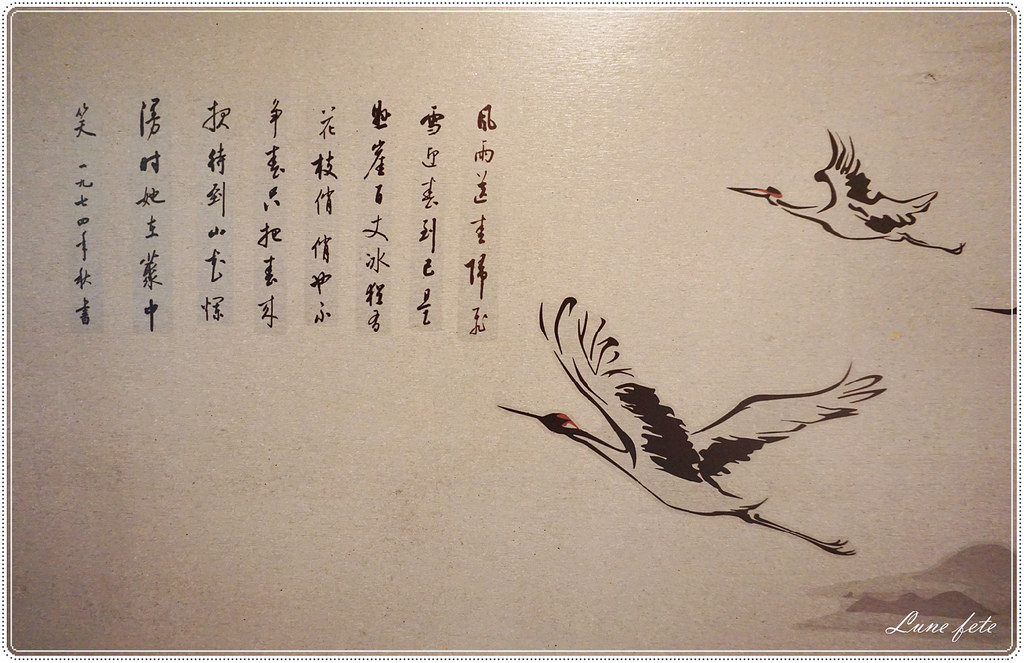 风雨送春歸飛
雪迎春到已是
悬崖百丈冰猶有
花枝俏俏也不
争春只把春来
报待到山花爛
漫时她在叢中
笑 一九七四年秋書
Lune fete